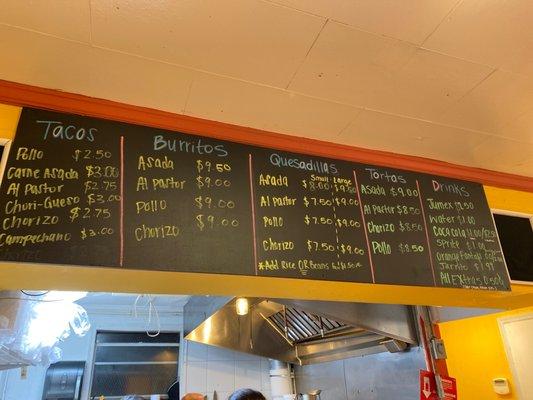 Tacos
Pollo $2.50
Carne Asada $3.00
Al Pastor $2.75
Chori-Queso $3.00
Chorizo $2.75
Campechano $3.00
Burritos
Asada $9.50
Al Pastor $9.00
Pollo $9.00
Chorizo $9.00
Quesadillas
Small Large
Asada $8.00 $9.50
Al Pastor $7.50 $9.00
Pollo $7.50 $9.00
Chorizo $7.50 $9.00
*Add Rice OR Beans
Tortas
Asada $9.00
Al Pastor $8.50
Chorizo $8.50
Pollo $8.50
Drinks
Jumex
Water
Coca cola
Sprite
Orange Fantas
Jarrito
All Extras 0.50